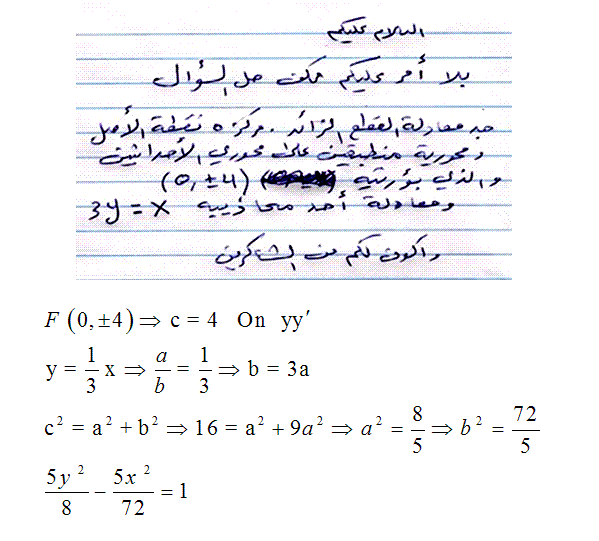 السلام عليكم
بلا أمر عليكم ممكن حل السؤال
جد معادلة القطع الزائد . مركزه نقطة الأصل
ومحورية منطبقين على محوري الأحداثيين
والذي بؤرتيه (0, ±4)
ومعادلة أحد محاذييه 3y = x
واكون لكم من الشاكرين
F (0,±4) ⇒ c = 4 On yy′
y = 1/3 x ⇒ a/b = 1/3 ⇒ b = 3a
c² = a² + b² ⇒ 16 = a² + 9a² ⇒ a² = 8/5 ⇒ b² = 72/5
5y²/8 − 5x²/72 = 1